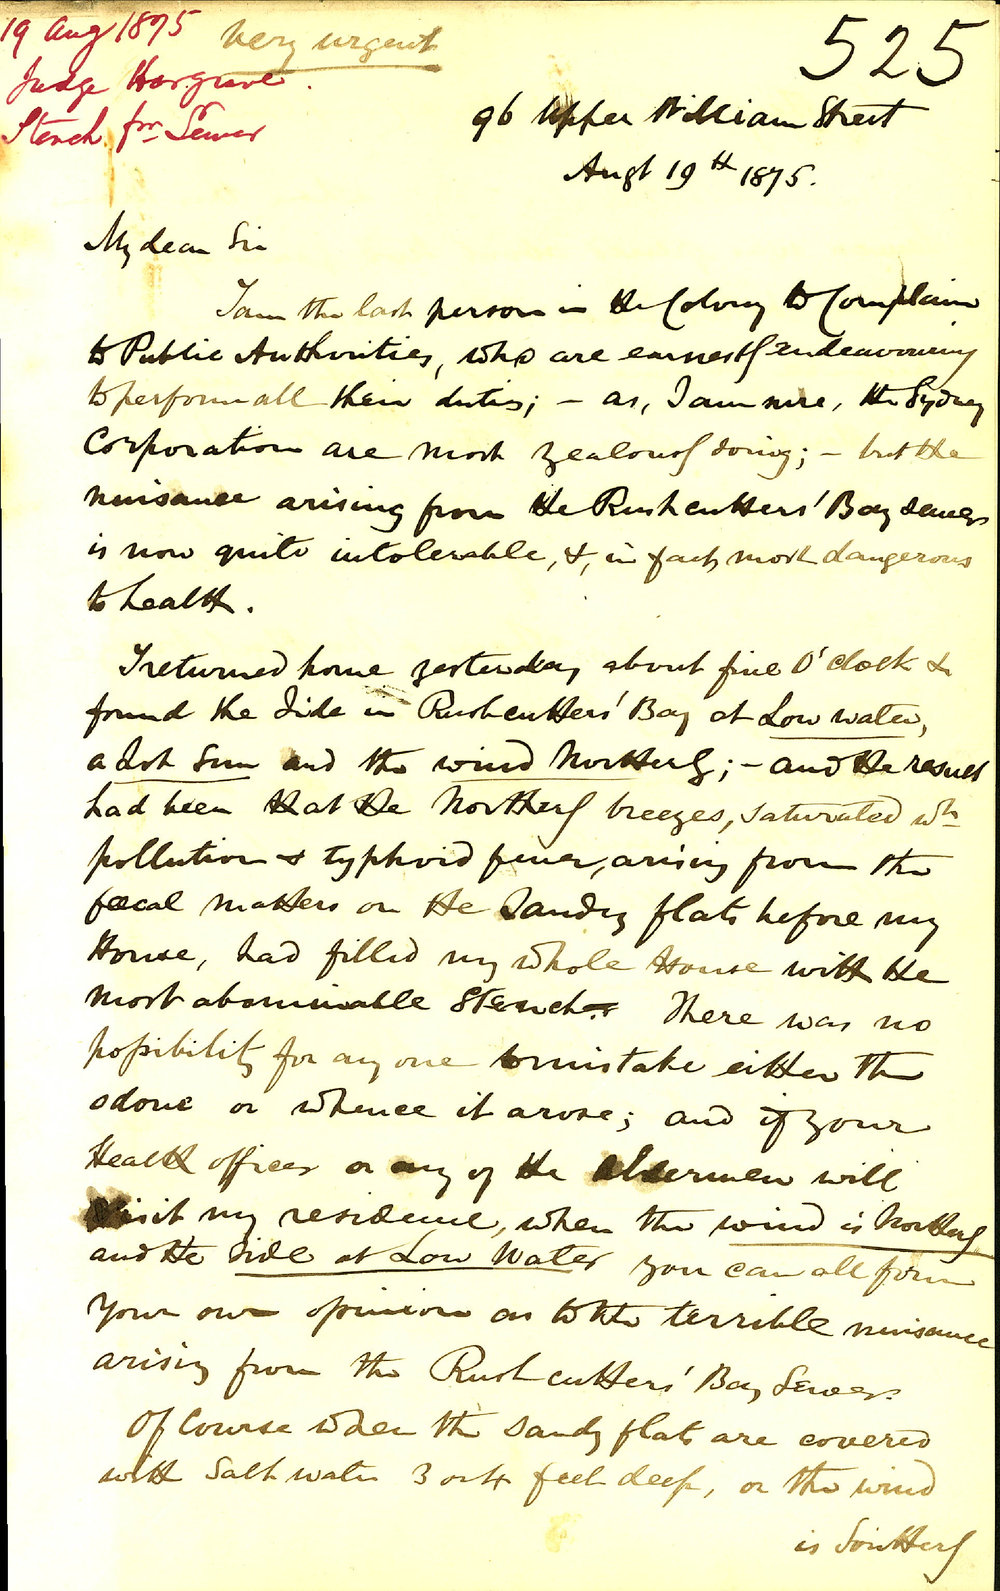 19 Aug 1875
very urgent
Judge Hargrave.
Stench fm Sewer
525
96 Upper William Street
Augt 19th 1875.
My dear Sir
I am the last person in the Colony to Complain
to Public Authorities, who are earnestly endeavouring
to perform all their duties; – as, I am sure, the Sydney
Corporation are most zealously doing; – but the
nuisance arising from the Rushcutters' Bay sewers
is now quite intolerable, &, in fact, most dangerous
to health.
I returned home yesterday about five O'clock &
found the Tide in Rushcutters' Bay at Low water,
a hot Sun and the wind Northerly; – and the result
had been that the Northerly breezes, saturated wh
pollution & typhoid fever, arising from the
fœcal matters on the Sandy flats before my
House, had filled my whole House with the
most abominable Stench. There was no
possibility for any one to mistake either the
odour or whence it arose; and if your
Health officer or any of the Aldermen will
visit my residence, when the wind is Northerly
and the Tide at Low Water you can all form
your own opinion as to the terrible nuisance
arising from the Rushcutters' Bay Sewers.
Of Course when the Sandy flats are covered
with Salt water 3 or 4 feet deep, or the wind
is Southerly